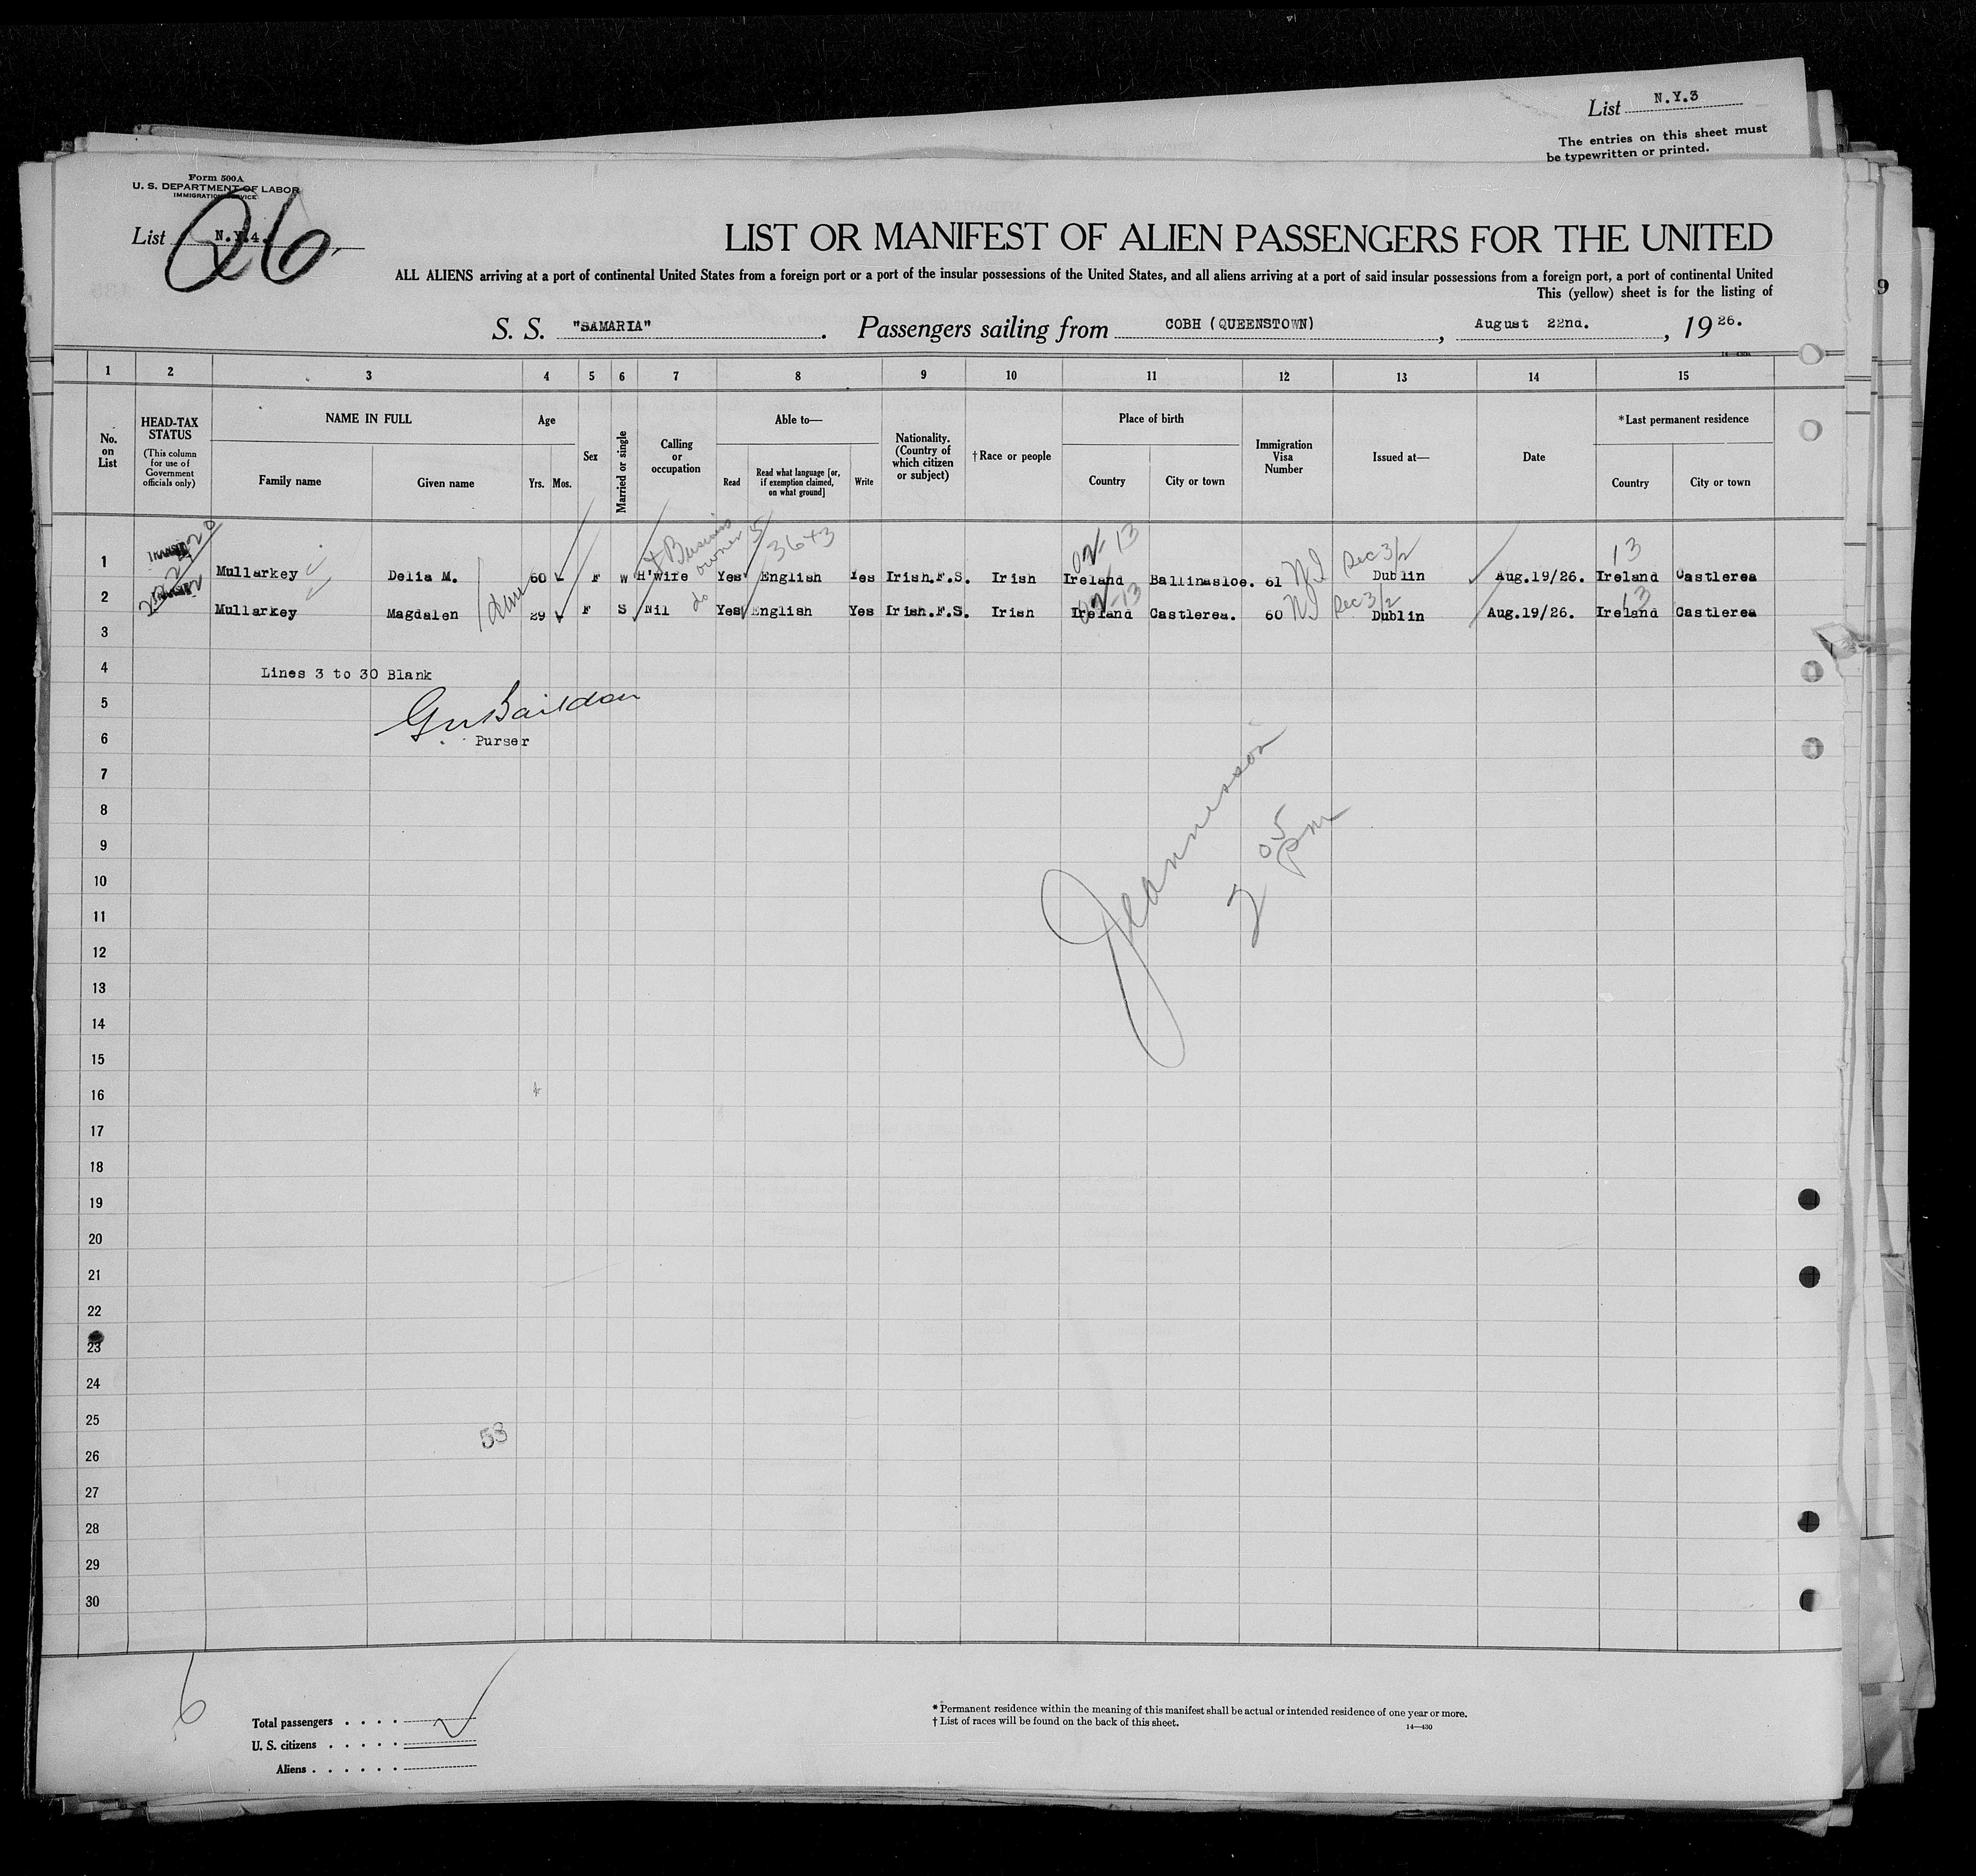 List N.Y.3
The entries on this sheet must
be typewritten or printed.
Form 500A
U. S. DEPARTMENT OF LABOR
IMMIGRATION SERVICE
List N.Y.4.
26
9
LIST OR MANIFEST OF ALIEN PASSENGERS FOR THE UNITED
ALL ALIENS arriving at a port of continental United States from a foreign port or a port of the insular possessions of the United States, and all aliens arriving at a port of said insular possessions from a foreign port, a port of continental United
This (yellow) sheet is for the listing of
S. S. "SAMARIA" . Passengers sailing from COBH (QUEENSTOWN) , August 22nd. , 19 26.
1 2 3 4 5 6 7 8 9 10 11 12 13 14 15
No. on List
HEAD-TAX STATUS
(This column for use of Government officials only)
NAME IN FULL
Family name
Given name
Age
Yrs. Mos.
Sex
Married or single
Calling or occupation
Able to—
Read
Read what language [or, if exemption claimed, on what ground]
Write
Nationality. (Country of which citizen or subject)
† Race or people
Place of birth
Country
City or town
Immigration Visa Number
Issued at—
Date
*Last permanent residence
Country
City or town
Business owner 3643 13 Rec 3/2 13
1 Mullarkey Delia M. 60 F W H'wife Yes English Yes Irish.F.S. Irish Ireland Ballinasloe. 61 Dublin Aug.19/26. Ireland Castlerea
do 13 Rec 3/2 13
2 Mullarkey Magdalen 29 F S Nil Yes English Yes Irish.F.S. Irish Ireland Castlerea. 60 Dublin Aug.19/26. Ireland Castlerea
3
4 Lines 3 to 30 Blank
5
6 Purser
7
8
9
10
11
12
13
14
15
16
17
18
19
20
21
22
23
24
25
53
26
27
28
29
30
2 05 pm
6
Total passengers . . . .
U. S. citizens . . . . .
Aliens . . . . . .
* Permanent residence within the meaning of this manifest shall be actual or intended residence of one year or more.
† List of races will be found on the back of this sheet.
14—430